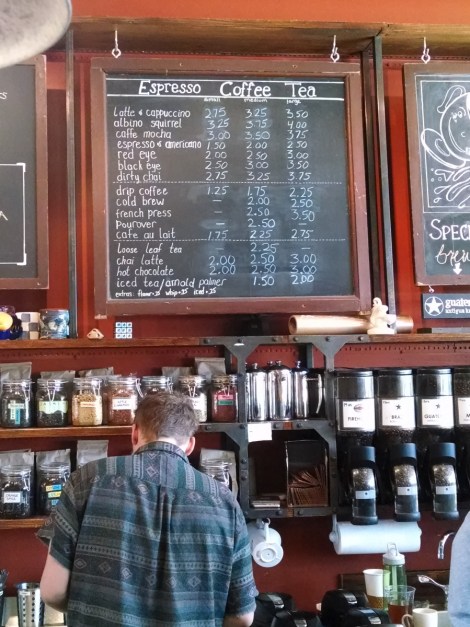 Espresso Coffee Tea
small medium large
Latte & cappuccino 2.75 3.25 3.50
albino squirrel 3.25 3.75 4.00
caffe mocha 3.00 3.50 3.75
espresso & americano 1.50 2.00 2.50
red eye 2.00 2.50 3.00
black eye 2.50 3.00 3.50
dirty chai 2.75 3.25 3.75
drip coffee 1.25 1.75 2.25
cold brew — 2.00 2.50
french press — 2.50 3.50
Pourover — 2.50 —
cafe au lait 1.75 2.25 2.75
Loose leaf tea 2.25 —
chai latte 2.00 2.50 3.00
hot chocolate 2.00 2.50 3.00
iced tea/arnold palmer 1.50 2.00
extras: flavor .35 whip .35 iced .35
SPECI
brew
guatem
antigua